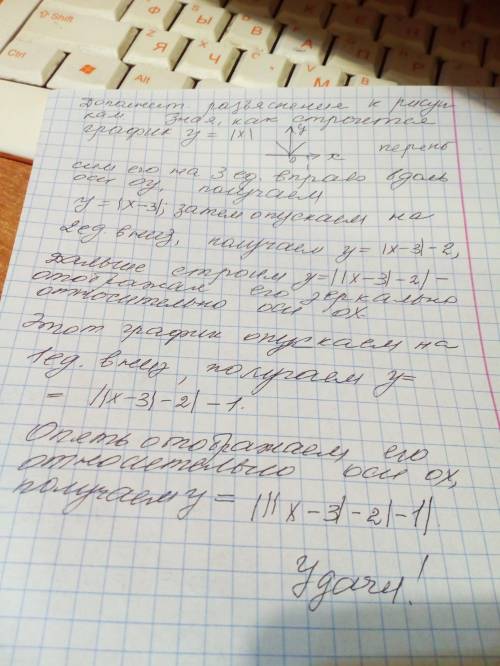 Shift
Ctrl
Alt
Ф Ы В Я Ч С М И
Дополнит разъяснения к рисун-
кам Зная, как строится
график y = |x| y x 0 перень
сим его на 3 ед. вправо вдоль
оси oy, получаем
y = |x-3|; затем опускаем на
2ед вниз, получаем y = |x-3|-2,
Дальше строим y=||x-3|-2| -
отображая его зеркально
относительно оси ox
Этот график опускаем на
1ед. вниз, получаем y=
= ||x-3|-2| -1.
Опять отображаем его
относительно оси ox,
получаем y = |||x-3|-2|-1|
Удачи!